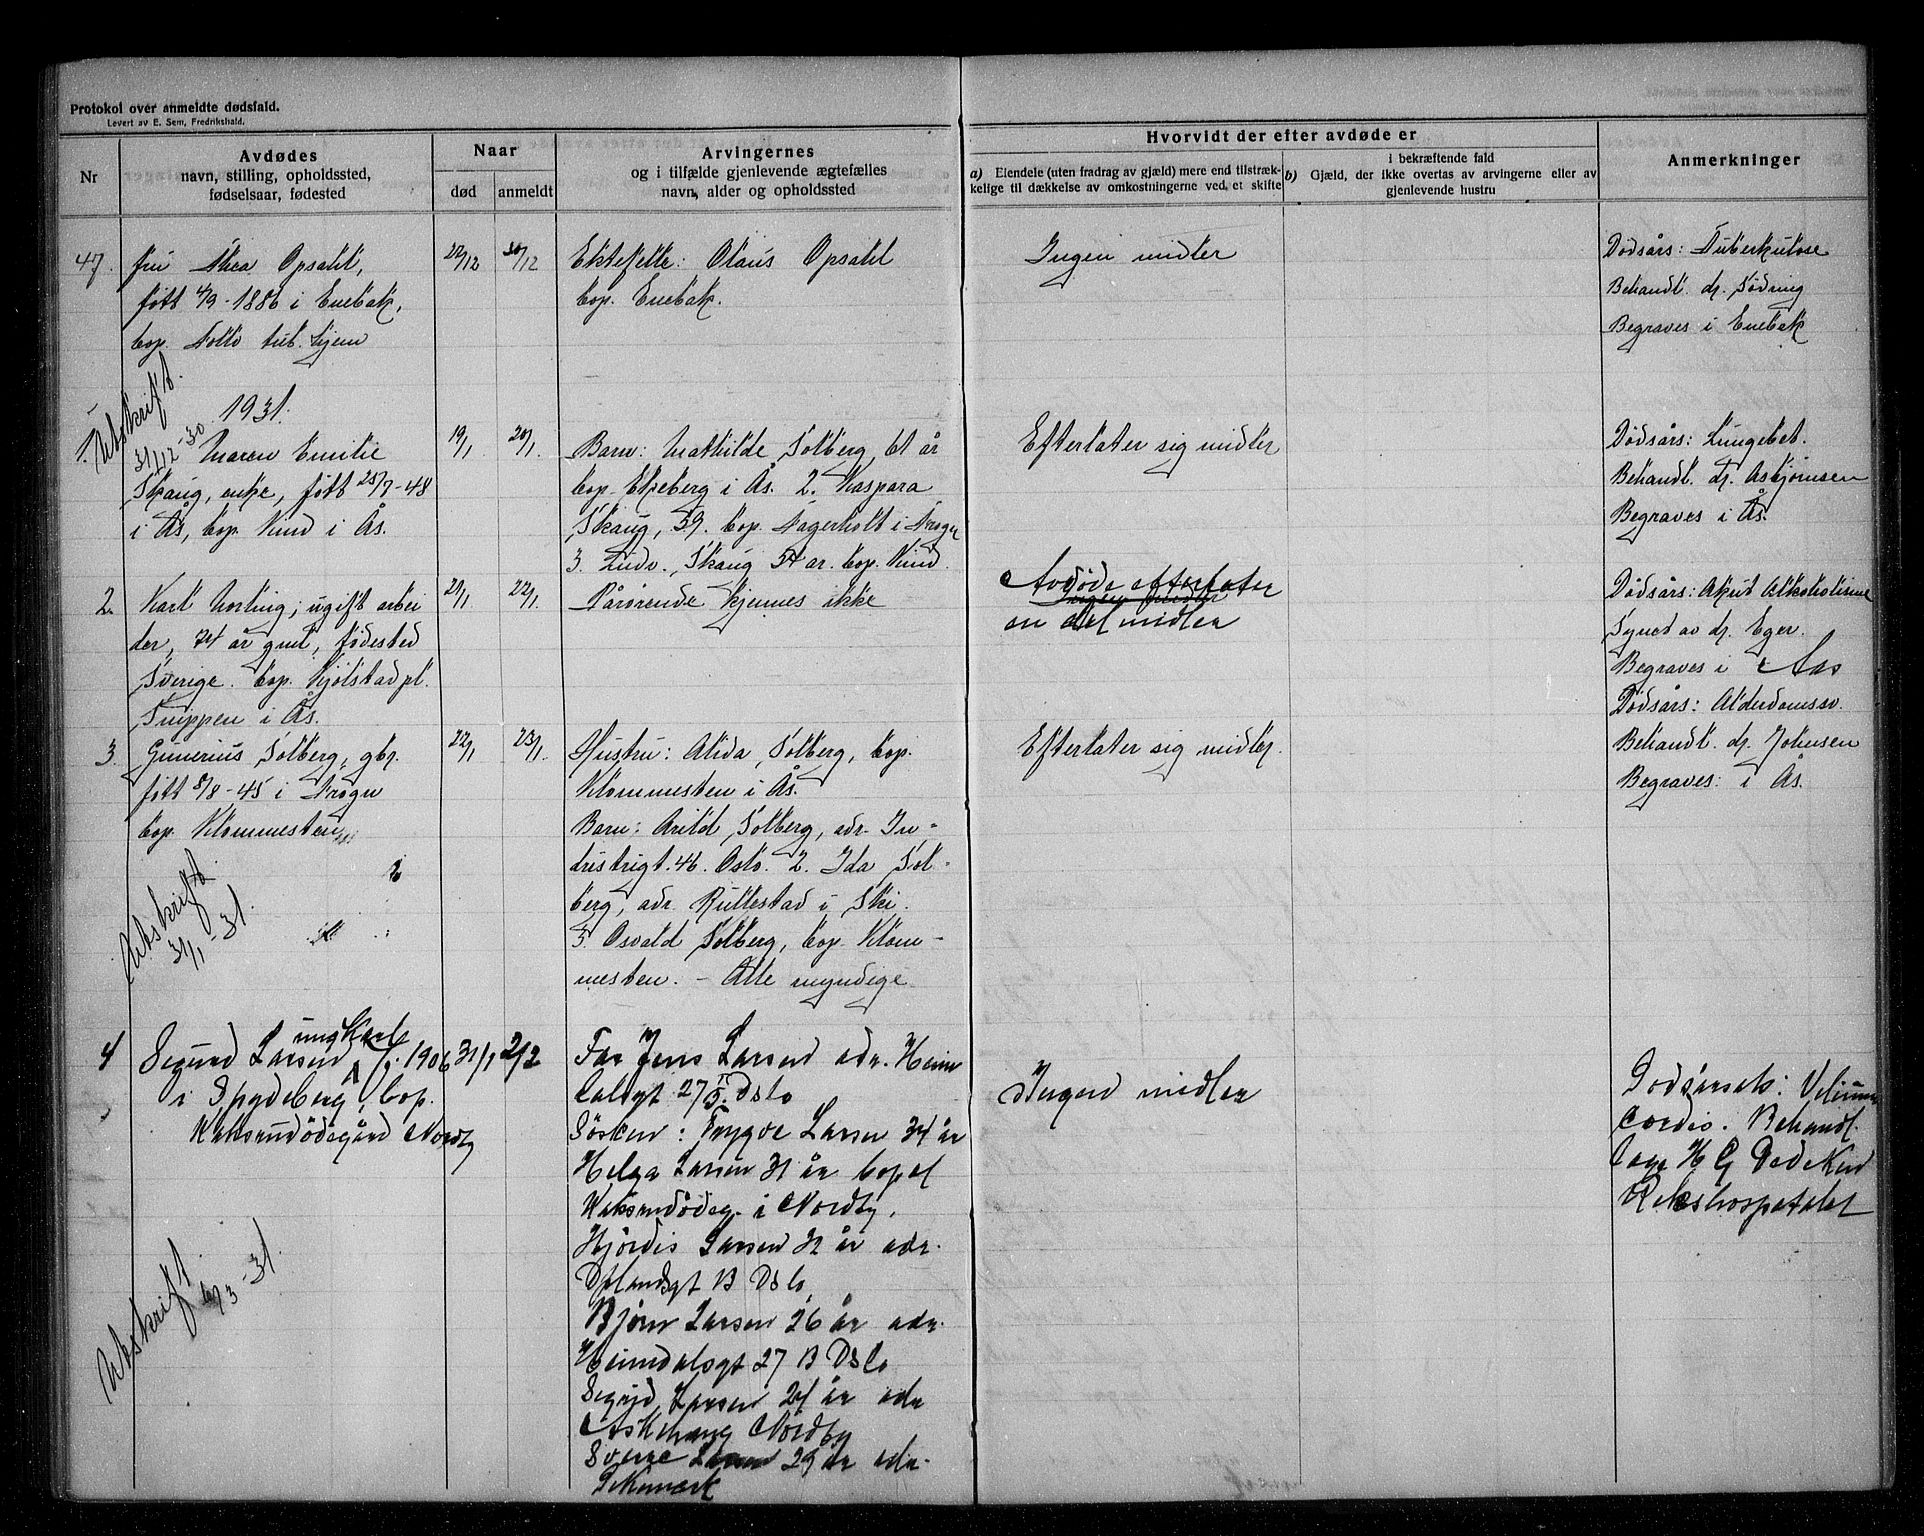 Protokol over anmeldte dødsfald.
Levert av E. Sem, Fredrikshald.
Nr
Avdødes
navn, stilling, opholdssted,
fødselsaar, fødested
Naar
død
anmeldt
Arvingernes
og i tilfælde gjenlevende ægtefælles
navn, alder og opholdssted
Hvorvidt der efter avdøde er
a) Eiendele (uten fradrag av gjæld) mere end tilstræk-
kelige til dækkelse av omkostningerne ved et skifte
b)
i bekræftende fald
Gjæld, der ikke overtas av arvingerne eller av
gjenlevende hustru
Anmerkninger
47.
fru Thea Opsahl,
født 4/9-1886 i Enebak,
bop. Follo tub. hjem
22/12
30/12
Ektefelle: Olaus Opsahl
bop. Enebak.
Ingen midler
Dødsårs: Tuberkulose
Behandl. dr. Sødring
Begraves i Enebak
Utskrift
31/12-30
1931.
1.
Maren Emilie
Skaug, enke, født 25/7-48
i Ås, bop. Kind i Ås.
19/1
20/1.
Barn: Mathilde Solberg, 61 år
bop. Ekeberg i Ås. 2. Kaspara
Skaug, 59. bop. Fagerholt i Frogn
3. Ludv. Skaug 54 ar. bop. Kind.
Efterlater sig midler
Dødsårs: Lungebet.
Behandl. dr. Asbjørnsen
Begraves i Ås.
2.
Karl Norling, ugift arbei
der, 74 år gml, fødested
Sverige. bop. Kjølstadpl.
Snippen i Ås.
21/1
22/1.
Pårørende kjennes ikke
Avdøde efterlater
Ingen midler
en del midler
Dødsårs: Akut Alkoholisme
Synet av dr. Eger.
Begraves i Aas
3.
Gunerius Solberg, gbr.
født 8/8-45 i Frogn
bop. Klommesten
22/1
23/1.
Hustru: Alida Solberg, bop.
Klommesten i Ås.
Barn: Arild Solberg, adr. In-
dustrigt. 46. Oslo. 2. Ida Sol-
berg, adr. Rullestad i Ski.
3. Osvald Solberg, bop. Klom-
mesten. - Alle myndige
Efterlater sig midler.
Dødsårs: Alderdomssv.
Behandl. dr. Johnsen
Begraves: i Ås.
Utskrift
31/1-31.
4
ungkarl
Sigurd Larsen f. 1906
i Spydeberg, bop.
Kaksrudødegård Nordby
31/1
2/2
Far Jens Larsen adr. Heim
dalsgt 27 Oslo
Søsken: Trygve Larsen 34 år
Helga Larsen 31 år bopel
Kaksrudødeg. i Nordby.
Hjördis Larsen 32 år adr.
Oplandsgt B Oslo
Bjørn Larsen 26 år adr.
Heimdalsgt 27 B Oslo
Sigrid Larsen 24 år adr
Askehaug Nordby
Sverre Larsen 29 år adr.
Ingen midler
Dødsårsak:
cordis. Behandl.
Rikshospitalet
Utskrift
6/3-31.